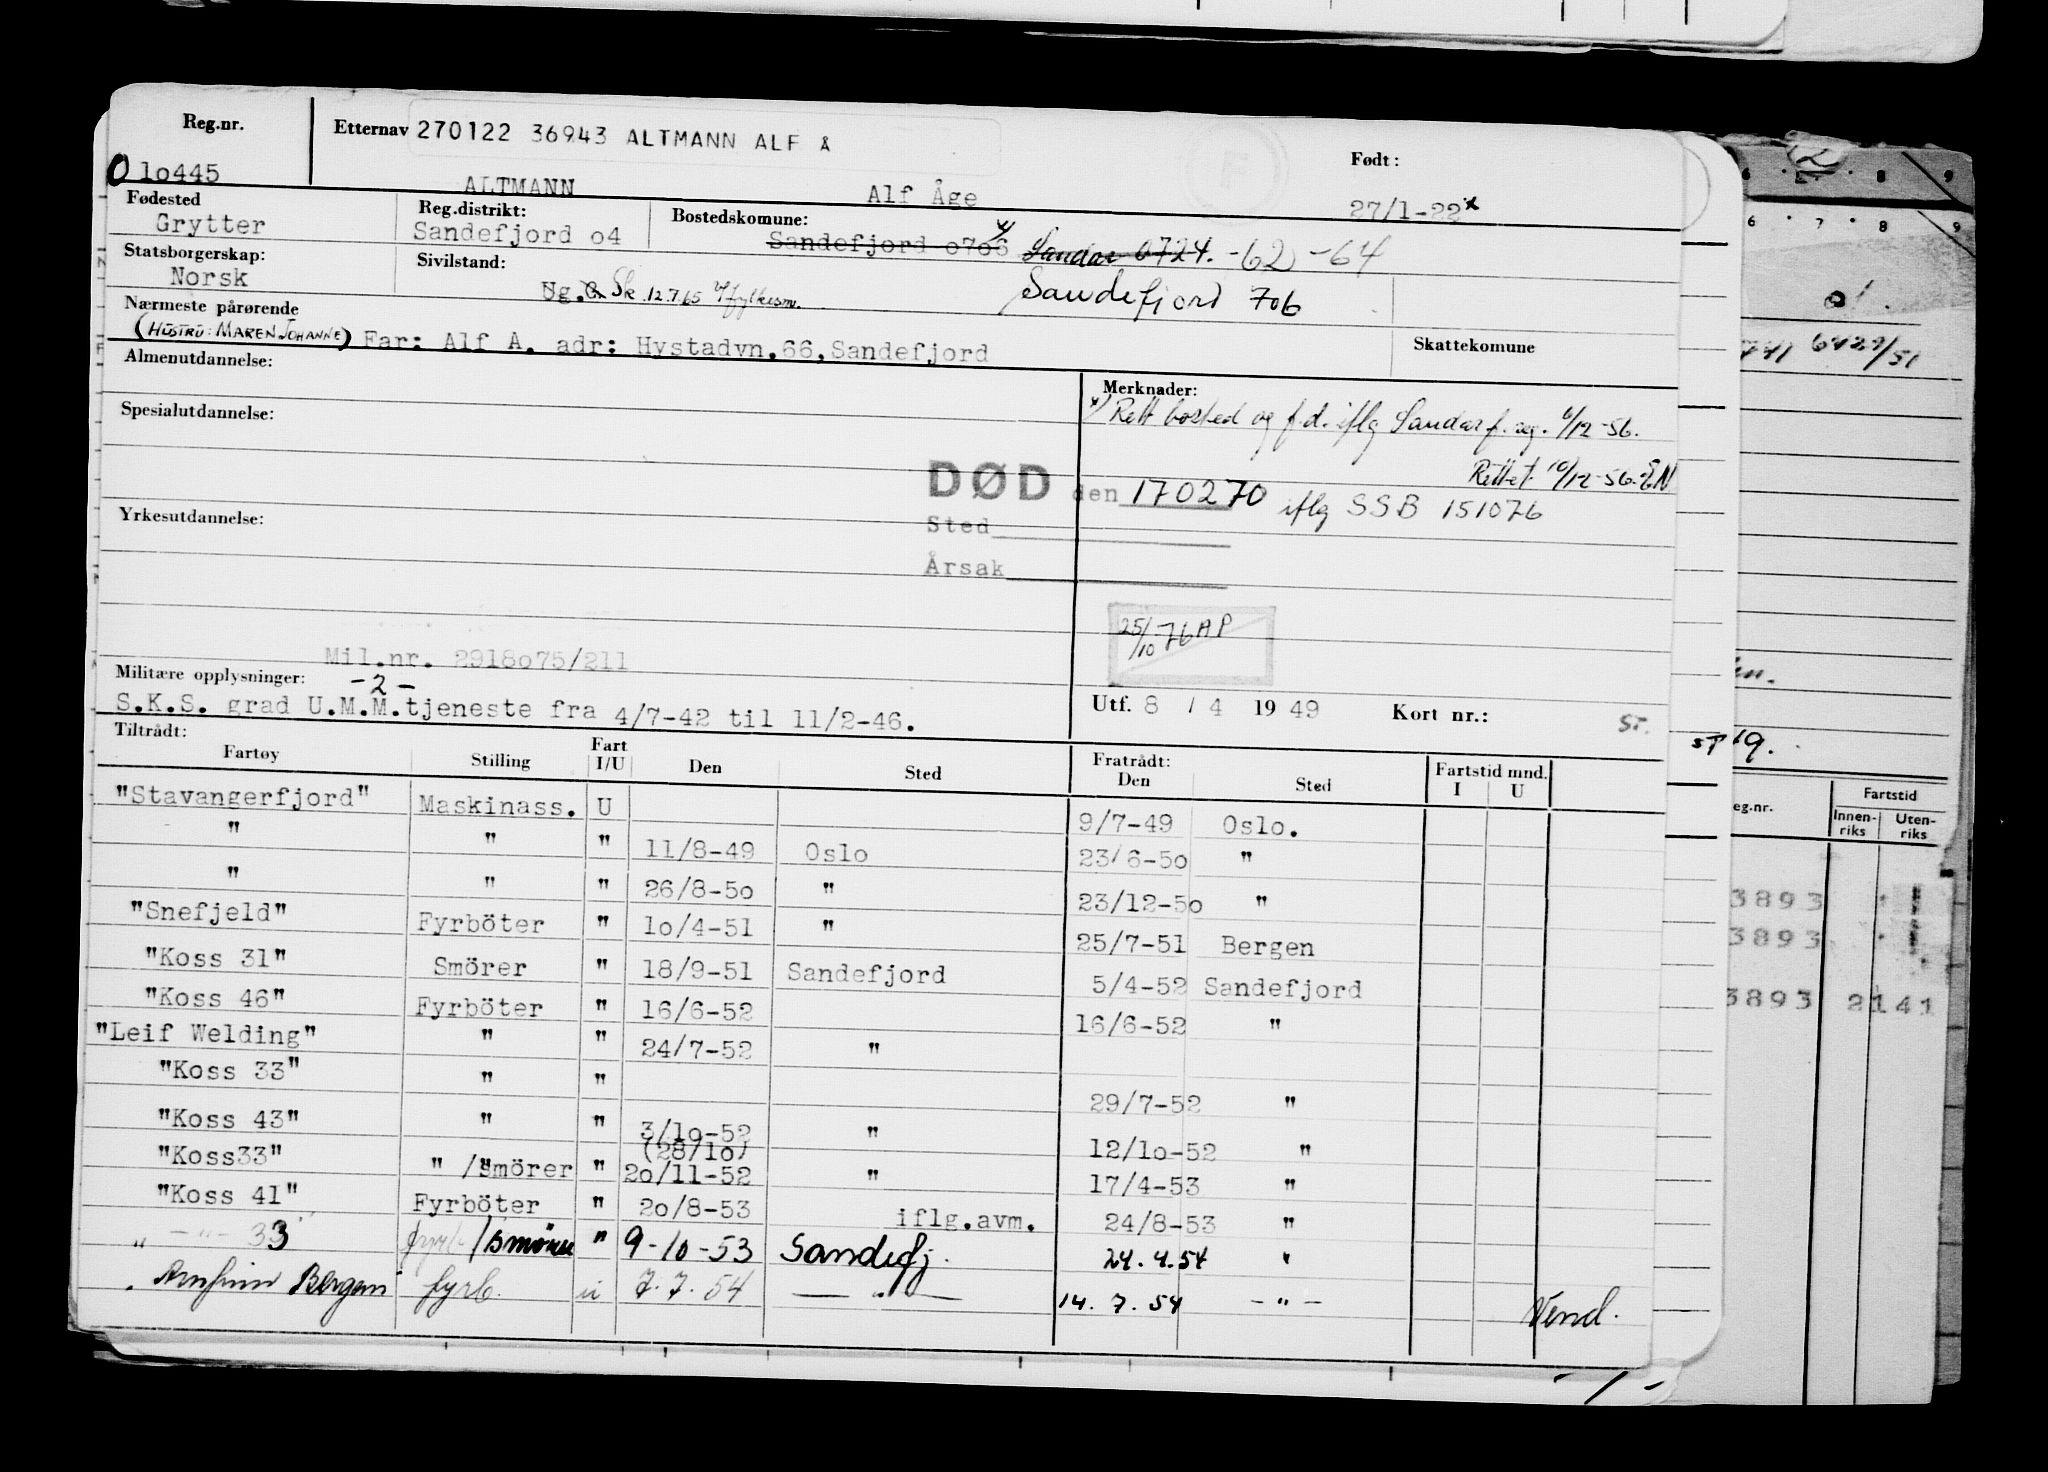 Reg.nr. Etternav 270122 36943 ALTMANN ALF Å Født:
0 1o445 ALTMANN Alf Åge 27/1-22 x
Fødested Reg.distrikt: Bostedskomune:
Grytter Sandefjord o4 Sandefjord o7o6 Sandar 0724. -62 -64
Statsborgerskap: Sivilstand: Sandefjord 706
Norsk Ug. G. Sk 12.7.65 fylkesm.
Nærmeste pårørende
(HUSTRU: MAREN JOHANNE) Far: Alf A. adr: Hystadvn.66,Sandefjord Skattekomune
Almenutdannelse: Merknader:
x) Rett bosted og f.d. iflg Sandar f. reg. 6/12-56.
Spesialutdannelse: Rettet 10/12-56. EN
DØD den 170270 iflg SSB 151076
Yrkesutdannelse: Sted
Årsak
25/10 76 AP
Mil.nr. 2918o75/211
Militære opplysninger: -2-
S.K.S. grad U.M.M.tjeneste fra 4/7-42 til 11/2-46. Utf. 8 / 4 1949 Kort nr.: ST.
Tiltrådt: Fratrådt: Fartstid mnd.
Fartøy Stilling Fart I/U Den Sted Den Sted I U
"Stavangerfjord" Maskinass. U 9/7-49 Oslo.
" " " 11/8-49 Oslo 23/6-5o "
" " " 26/8-5o " 23/12-5o "
"Snefjeld" Fyrböter " 1o/4-51 " 25/7-51 Bergen
"Koss 31" Smörer " 18/9-51 Sandefjord 5/4-52 Sandefjord
"Koss 46" Fyrböter " 16/6-52 16/6-52 "
"Leif Welding" " " 24/7-52 "
"Koss 33" " " 29/7-52 "
"Koss 43" " " 3/1o-52 " 12/1o-52 "
(28/1o)
"Koss33" " /Smörer " 2o/11-52 " 17/4-53 "
"Koss 41" Fyrböter " 2o/8-53 iflg.avm. 24/8-53 "
" -"- 33 fyrb/smörer " 9-10-53 Sandefj. 24.4.54 "
" Arnfinn Bergan fyrb. u 7.7.54 — " — 14.7.54 -"-
Vend.
- / -
6 7 8 9
6 7 8 9
741 6429/51
ST 19.
eg.nr. Fartstid
Innen-riks Uten-riks
3893
3893
3893 2141